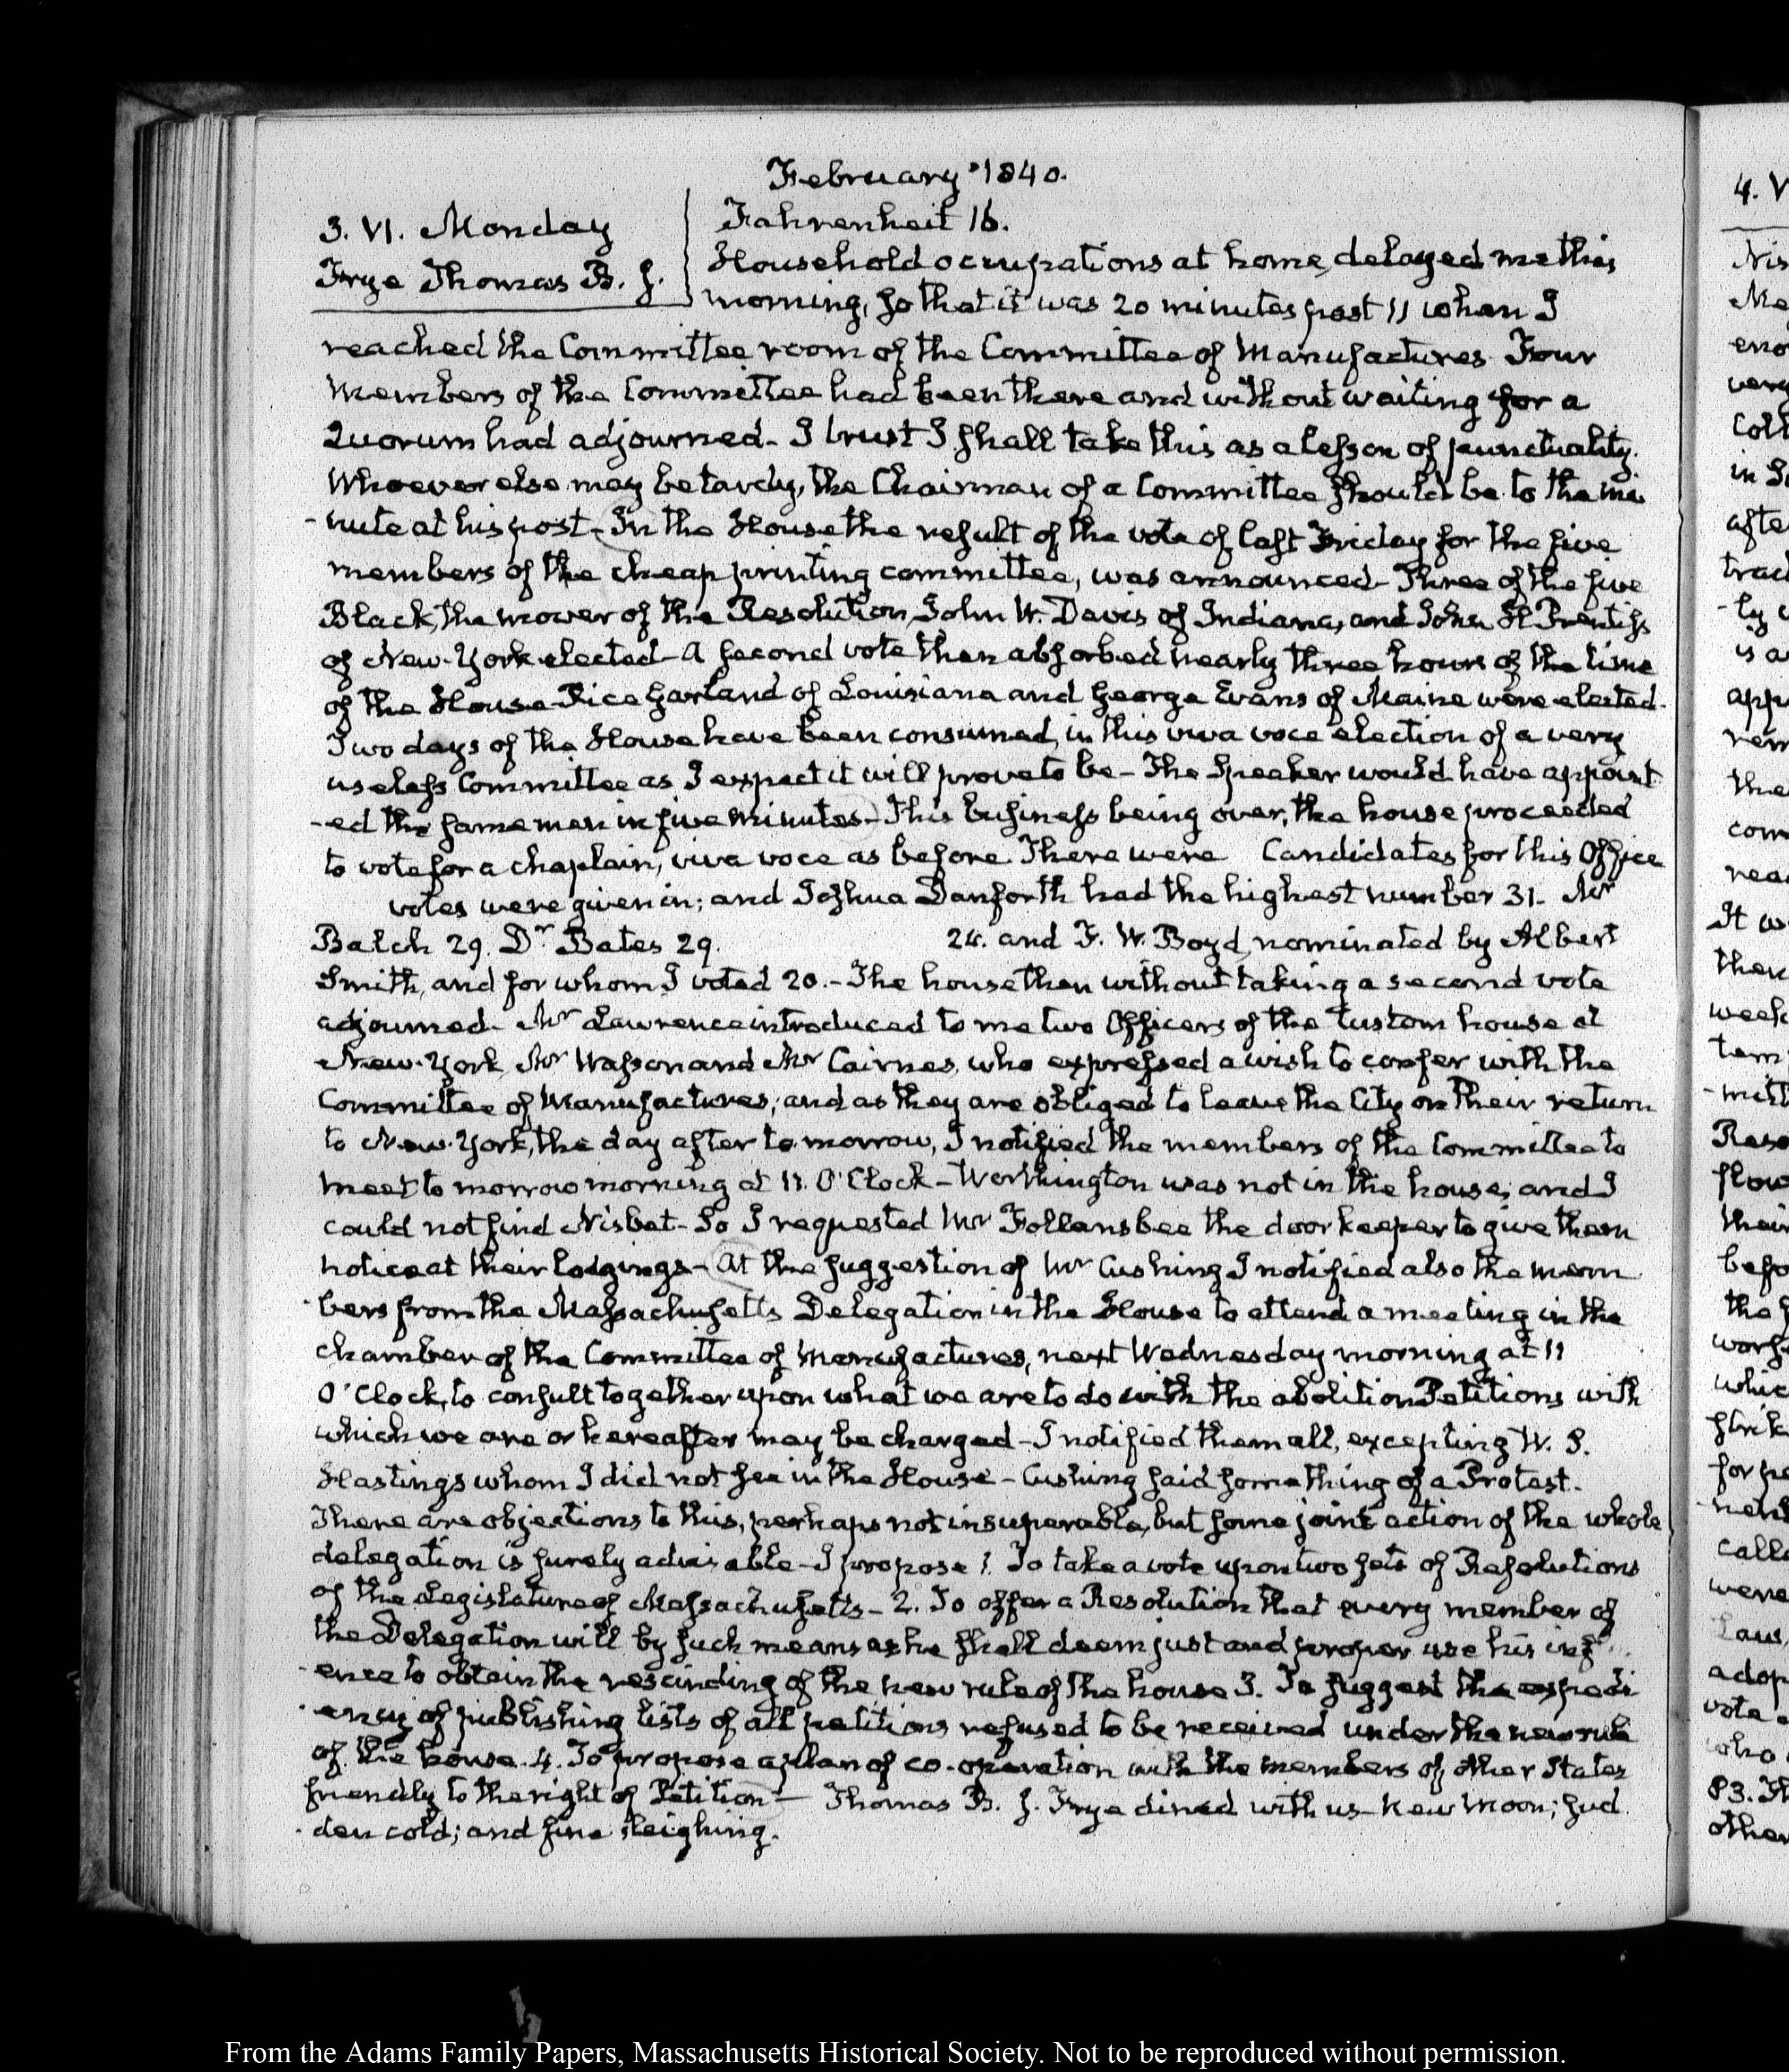 February 1840.
3. VI. Monday
Frye Thomas B. J.
Fahrenheit 16.
Household occupations at home, delayed me this
morning, so that it was 20 minutes past 11 when I
reached the Committee room of the Committee of Manufactures Four
Members of the Committee had been there and without waiting for a
Quorum had adjourned- I trust I shall take this as a lesson of punctuality.
Whoever else may be tardy, the Chairman of a Committee should be to the mi
-nute at his post- In the House the result of the vote of last Friday for the five
members of the cheap printing committee, was announced- Three of the five
Black, the mover of the Resolution, John W. Davis of Indiana, and John H Prentiss
of New-York elected- A second vote then absorbed nearly three hours of the time
of the House Rice Garland of Louisiana and George Evans of Maine were elected.
Two days of the House have been consumed in this viva voce election of a very
useless Committee as I expect it will prove to be- The Speaker would have appoint
-ed the same men in five minutes- This business being over, the house proceeded
to vote for a chaplain, viva voce as before There were Candidates for this Office
votes were given in; and Joshua Danforth had the highest number 31- Mr
Balch 29. Dr Bates 29. 24. and F. W. Boyd, nominated by Albert
Smith, and for whom I voted 20.- The house then without taking a second vote
adjourned- Mr Lawrence introduced to me two Officers of the Custom house at
New-York, Mr Wasson and Mr Cairnes, who expressed a wish to confer with the
Committee of Manufactures; and as they are obliged to leave the City on their return
to New-York, the day after to-morrow, I notified the members of the Committee to
meet to morrow morning at 11. O'Clock- Worthington was not in the house, and I
could not find Nisbet- So I requested Mr Follansbee the doorkeeper to give them
notice at their lodgings- At the suggestion of Mr Cushing I notified also the mem
-bers from the Massachusetts Delegation in the House to attend a meeting in the
chamber of the Committee of Manufactures, next Wednesday morning at 11
O'Clock, to consult together upon what we are to do with the abolition Petitions with
which we are or hereafter may be charged- I notified them all, excepting W. S.
Hastings whom I did not see in the House- Cushing said something of a Protest.
There are objections to this, perhaps not insuperable, but some joint action of the whole
delegation is surely advisable- I propose 1. To take a vote upon two sets of Resolutions
of the Legislature of Massachusetts- 2. To offer a Resolution that every member of
the Delegation will by such means as he shall deem just and proper use his infl
-ence to obtain the rescinding of the new rule of the house 3. To suggest the expedi
-ency of publishing lists of all petitions refused to be received under the new rule
of the house. 4. To propose a plan of co-operation with the members of other States
friendly to the right of Petition- Thomas B. J. Frye dined with us- New Moon; sud
-den cold; and fine sleighing.
From the Adams Family Papers, Massachusetts Historical Society. Not to be reproduced without permission.